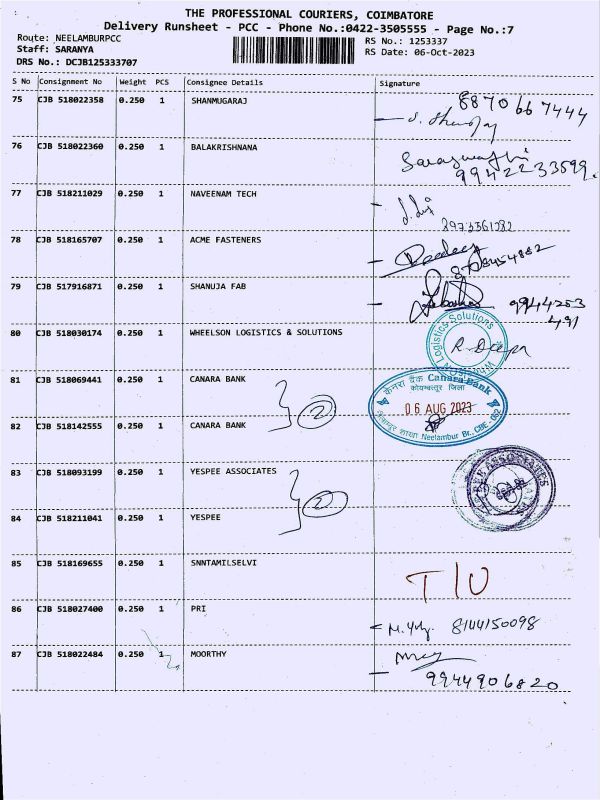 THE PROFESSIONAL COURIERS, COIMBATORE
Delivery Runsheet - PCC - Phone No.:0422-3505555 - Page No.:7
Route: NEELAMBURPCC RS No.: 1253337
Staff: SARANYA RS Date: 06-Oct-2023
DRS No.: DCJB125333707
S No Consignment No Weight PCS Consignee Details Signature
75 CJB 518022358 0.250 1 SHANMUGARAJ 8870667444
76 CJB 518022360 0.250 1 BALAKRISHNANA
9942233599.
77 CJB 518211029 0.250 1 NAVEENAM TECH
78 CJB 518165707 0.250 1 ACME FASTENERS
79 CJB 517916871 0.250 1 SHANUJA FAB 9944253
491
80 CJB 518030174 0.250 1 WHEELSON LOGISTICS & SOLUTIONS Logistics Solutions
R. Deepa
81 CJB 518069441 0.250 1 CANARA BANK 2 केनरा बैंक Canara Bank
कोयम्बत्तूर जिला
06 AUG 2023
82 CJB 518142555 0.250 1 CANARA BANK Neelambur Br., CBE - 062
83 CJB 518093199 0.250 1 YESPEE ASSOCIATES 2 ASSOCIATES
84 CJB 518211041 0.250 1 YESPEE
85 CJB 518169655 0.250 1 SNNTAMILSELVI T/U
86 CJB 518027400 0.250 1 PRI 8144150098
87 CJB 518022484 0.250 1 MOORTHY
9944906820